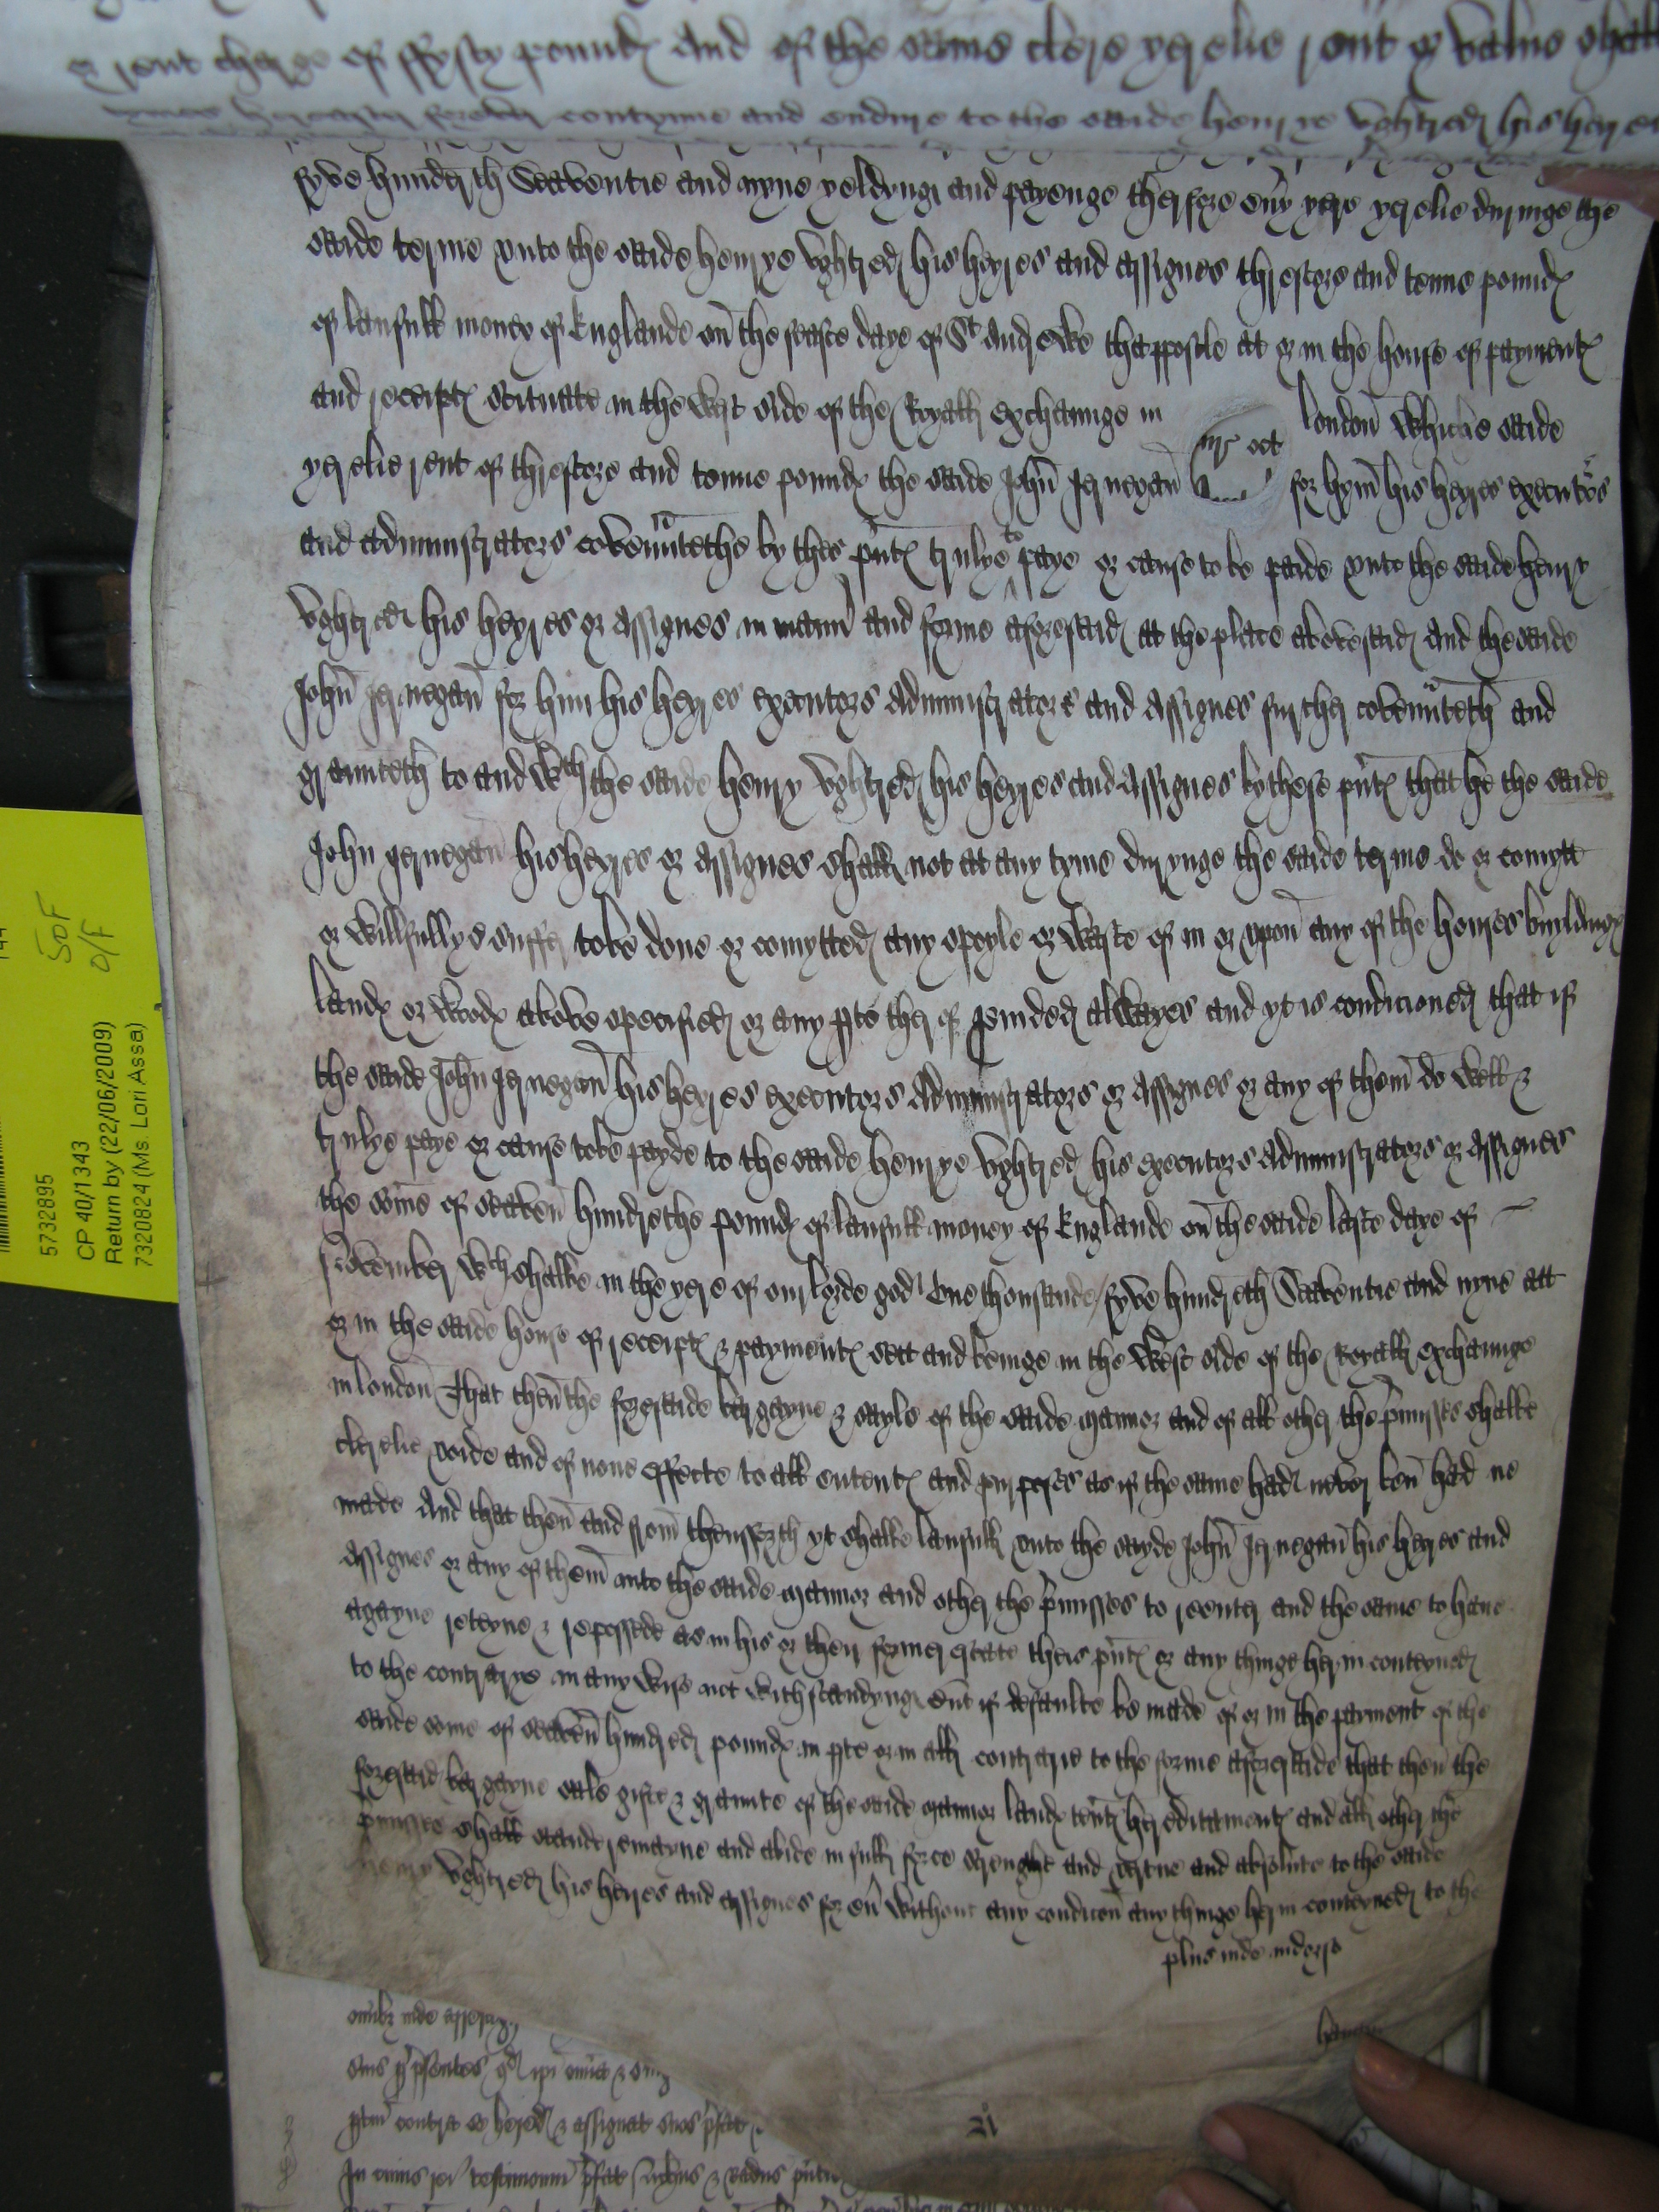 or rent charge of ffyfty pound and of the same clere yerelie rent or value shall
contynue and endure to the saide henrye Vghtred his heyres
fyve hundreth Seaventie and nyne yeldyng and payenge therfore eny yere yerelie duringe the
saide terme vnto the saide henrye Vghtred his heyres and assignes threscore and tenne pound
of laufull money of Englande on the feaste daye of St Andrewe thappostle at or in the house of payment
and receipt scituate in the West side of the Royall exchaunge in london Whiche saide
yerelie rent of threscore and tenne pound the saide John Jernegan for hym his heyres executors
and administrators covenutethe by thes pnt trulye to paye or cause to be paide vnto the saide henry
Vghtred his heyres or assignes in mann and forme aforesaid at the place abovesaid And the saide
John Jernegan for him his heyres executors Administrators and Assignes further covenuteth and
graunteth to and wth the saide henry Vghtred his heyres and Assignes by these pnt that he the saide
John Jernegan his heyres or assignes shall not at any tyme durynge the saide terme do or comytt
or willfullye suffer to be done or comytted any spoyle or Waste of in or vpon any of the houses buyldyng
land or Wood above specified or any pte therof provided alwayes and yt is condicioned that if
the saide John Jernegan his heyres executors Administrators or Assignes or any of them do Well &
trulye paye or cause to be payde to the saide henrye Vghtred his executors Administrators or Assignes
the some of seaven hundrethe pound of laufull money of Englande on the saide laste daye of
November wch shalbe in the yere of our lorde god One thousande fyve hundreth Seaventie and nyne att
or in the saide house of receipt & payment sett and beinge in the West side of the Royall exchaunge
in london That then the foresaide bargayne & sayle of the saide manor and of all other the pmisses shalbe
clerelie voide and of none effecte to all entent and purposes as if the same had never ben had ne
made And that then and from thensforth yt shalbe laufull vnto the sayde John Jernegan his heyres and
assignes or any of them into the saide manor and other the pmisses to reenter and the same to haue
agayne reteyne & repossede as in his or their former estate theis pnt or any thinge herin conteyned
to the contrarye in any wise not withstandyng And if defaulte be made of or in the payment of the
saide some of seaven hundred pound in pte or in all contrarie to the forme aforesaide that then the
foresaid bargayne sale gifte & graunte of the saide manor land tent hereditament and all other the
pmisses shall stande remayne and abide in full force strenght and vertue and absolute to the saide
henry Vghtred his heyres and assignes for eu without any condicon any thinge herin conteyned to the
plus inde indorso
omibz inde
contra se hered & assignat suos pfat
In cuius rei testimonium pfat
5732895
CP 40/1343
Return by (22/06/2009)
7320824 (Ms. Lori Assa)
SOF
O/F